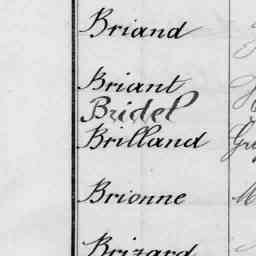 Briand
Briant
Bridel
Brilland
Brionne
Brizard